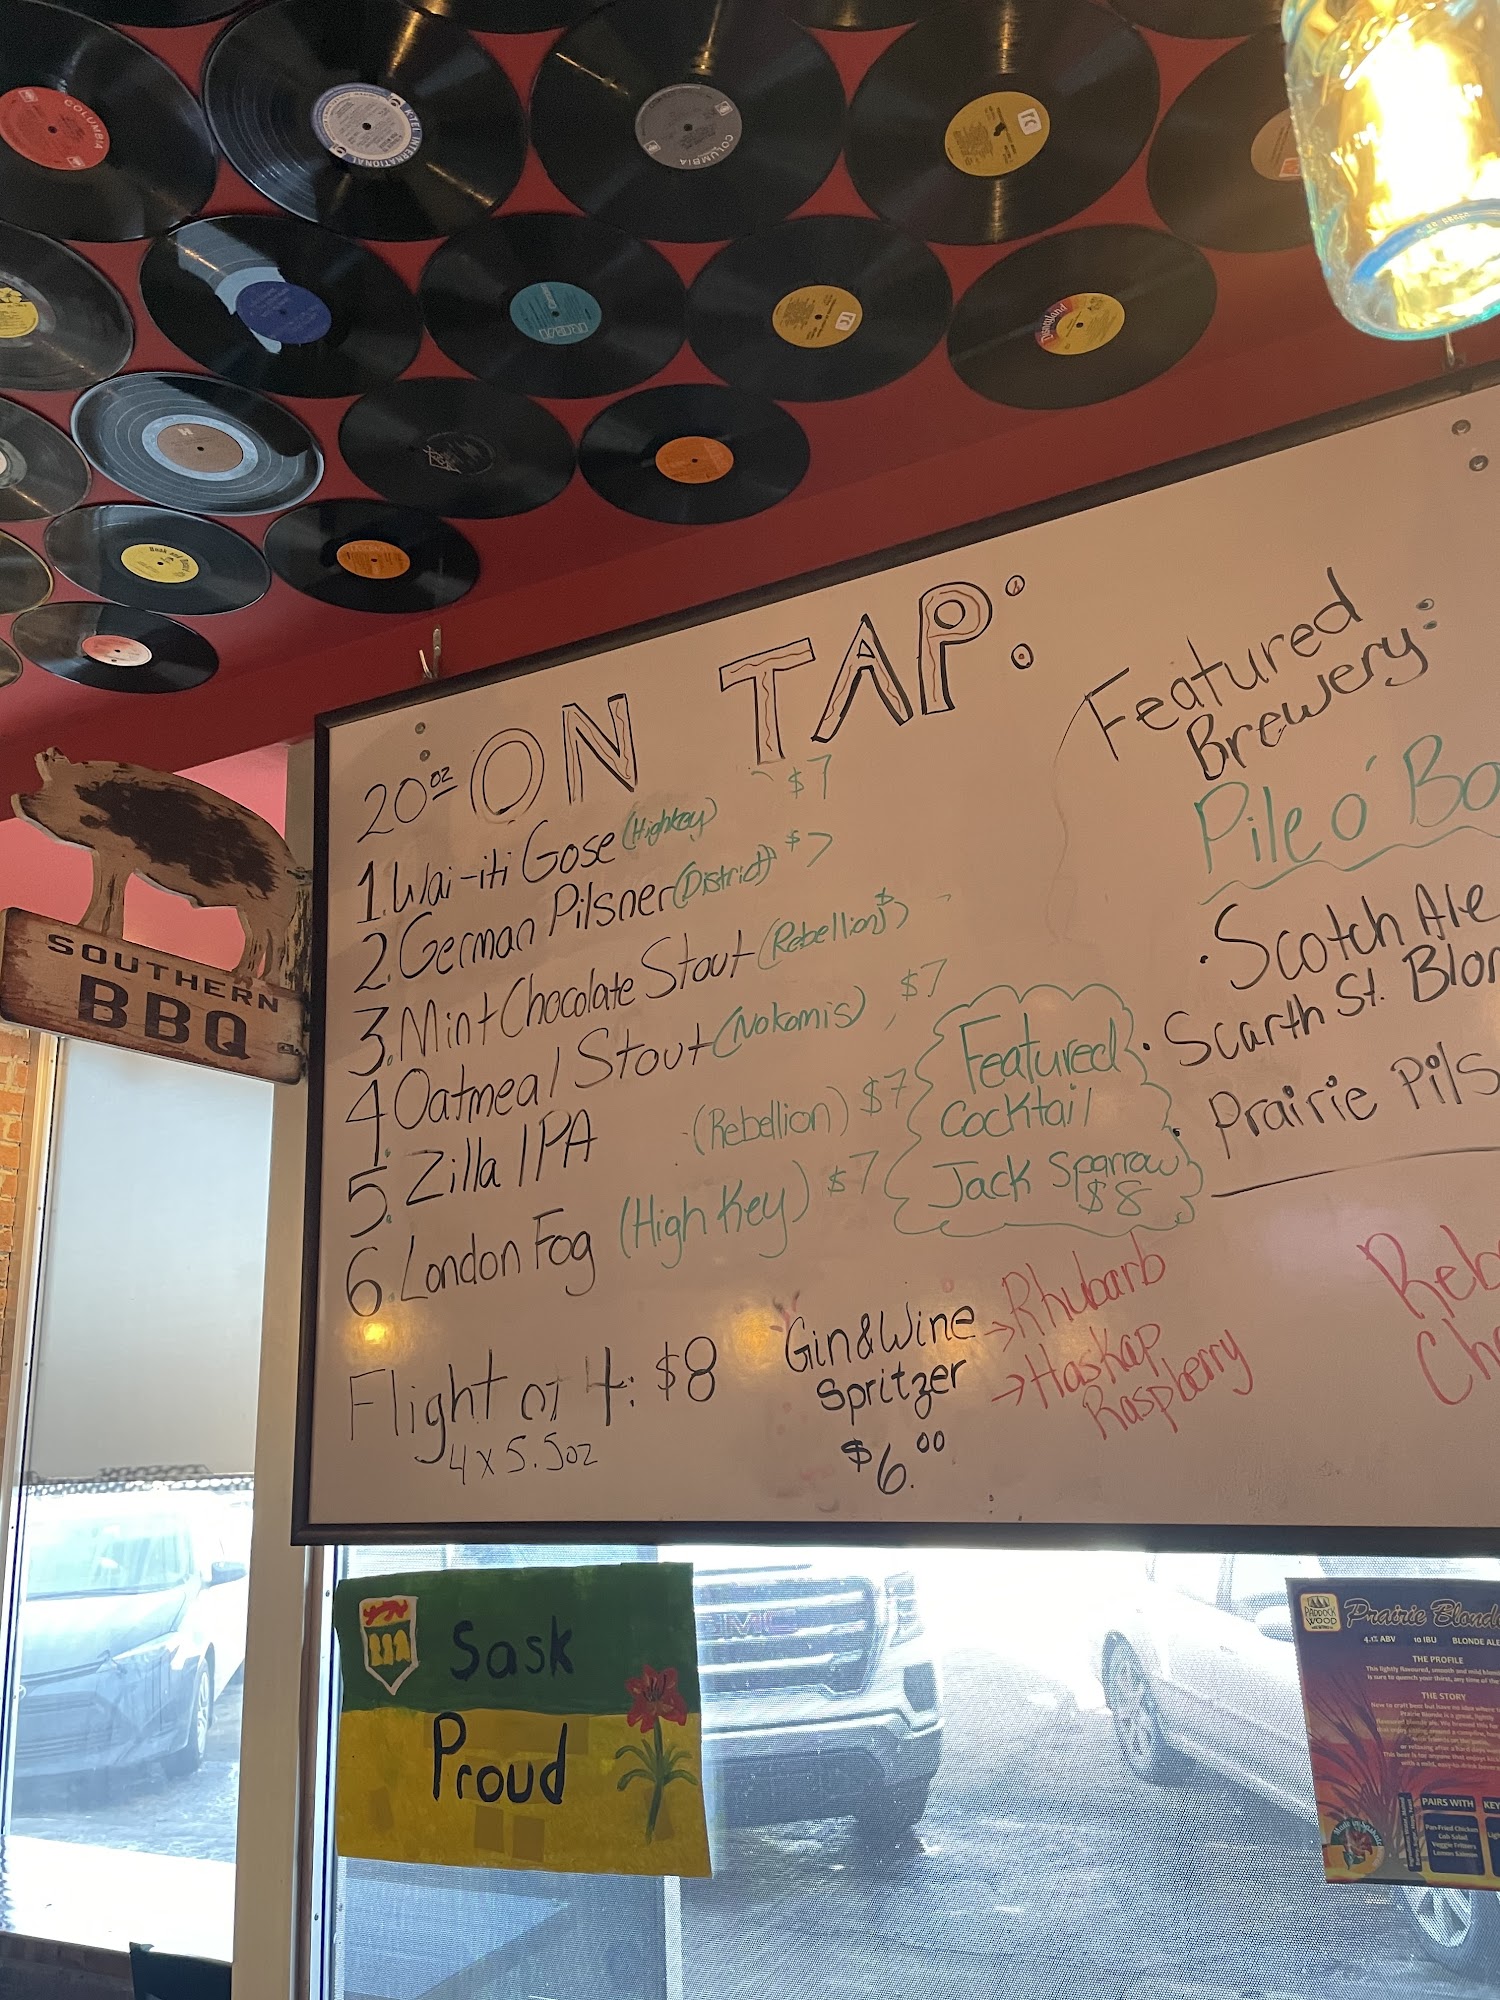 COLUMBIA
K-TEL INTERNATIONAL
COLUMBIA
Disneyland
ON TAP:
20oz
1. Wai-iti Gose (Highkey) $7
2. German Pilsner (District) $7
3. Mint Chocolate Stout (Rebellion) $7
4. Oatmeal Stout (Nokomis) $7
5. Zilla IPA (Rebellion) $7
6. London Fog (High Key) $7
Flight of 4: $8
4 x 5.5oz
Featured
Cocktail
Jack Sparrow
$8
Gin & Wine
Spritzer
$6.00
→ Rhubarb
→ Haskap
Raspberry
Featured
Brewery:
Pile o' Bo
• Scotch Ale
• Scarth St. Blon
• Prairie Pils
Reb
Ch
SOUTHERN
BBQ
Sask
Proud
GMC
PADDOCK
WOOD
Prairie Blond
ABV 10 IBU BLONDE ALE
THE PROFILE
THE STORY
PAIRS WITH
KEY
Pan-Fried Chicken
Cob Salad
Veggie Fritters
Lemon Salmon